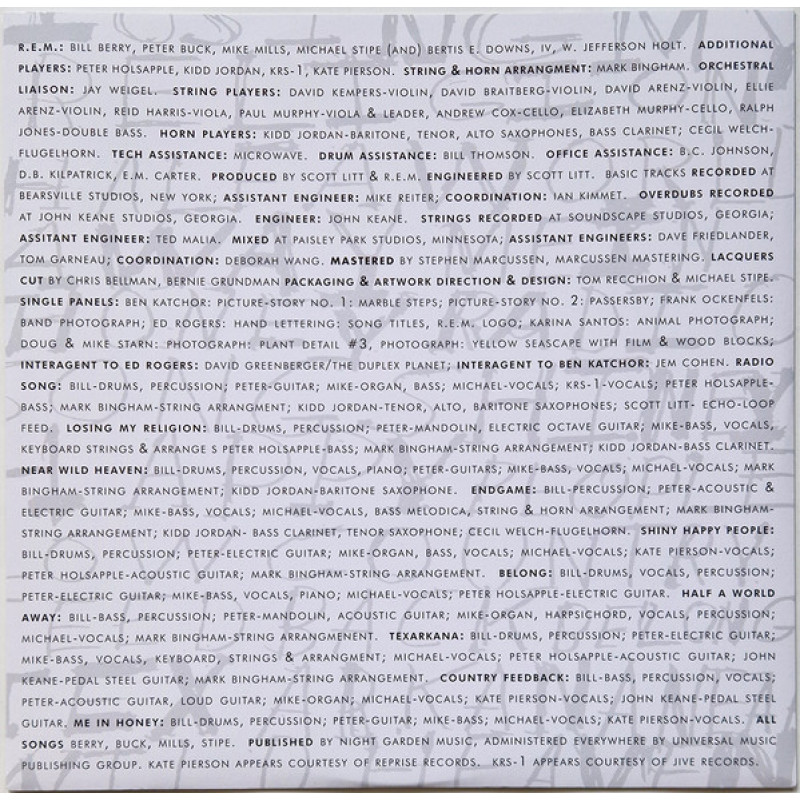 R.E.M.: BILL BERRY, PETER BUCK, MIKE MILLS, MICHAEL STIPE (AND) BERTIS E. DOWNS, IV, W. JEFFERSON HOLT. ADDITIONAL
PLAYERS: PETER HOLSAPPLE, KIDD JORDAN, KRS-1, KATE PIERSON. STRING & HORN ARRANGMENT: MARK BINGHAM. ORCHESTRAL
LIAISON: JAY WEIGEL. STRING PLAYERS: DAVID KEMPERS-VIOLIN, DAVID BRAITBERG-VIOLIN, DAVID ARENZ-VIOLIN, ELLIE
ARENZ-VIOLIN, REID HARRIS-VIOLA, PAUL MURPHY-VIOLA & LEADER, ANDREW COX-CELLO, ELIZABETH MURPHY-CELLO, RALPH
JONES-DOUBLE BASS. HORN PLAYERS: KIDD JORDAN-BARITONE, TENOR, ALTO SAXOPHONES, BASS CLARINET; CECIL WELCH-
FLUGELHORN. TECH ASSISTANCE: MICROWAVE. DRUM ASSISTANCE: BILL THOMSON. OFFICE ASSISTANCE: B.C. JOHNSON,
D.B. KILPATRICK, E.M. CARTER. PRODUCED BY SCOTT LITT & R.E.M. ENGINEERED BY SCOTT LITT. BASIC TRACKS RECORDED AT
BEARSVILLE STUDIOS, NEW YORK; ASSISTANT ENGINEER: MIKE REITER; COORDINATION: IAN KIMMET. OVERDUBS RECORDED
AT JOHN KEANE STUDIOS, GEORGIA. ENGINEER: JOHN KEANE. STRINGS RECORDED AT SOUNDSCAPE STUDIOS, GEORGIA;
ASSITANT ENGINEER: TED MALIA. MIXED AT PAISLEY PARK STUDIOS, MINNESOTA; ASSISTANT ENGINEERS: DAVE FRIEDLANDER,
TOM GARNEAU; COORDINATION: DEBORAH WANG. MASTERED BY STEPHEN MARCUSSEN, MARCUSSEN MASTERING. LACQUERS
CUT BY CHRIS BELLMAN, BERNIE GRUNDMAN PACKAGING & ARTWORK DIRECTION & DESIGN: TOM RECCHION & MICHAEL STIPE.
SINGLE PANELS: BEN KATCHOR: PICTURE-STORY NO. 1: MARBLE STEPS; PICTURE-STORY NO. 2: PASSERSBY; FRANK OCKENFELS:
BAND PHOTOGRAPH; ED ROGERS: HAND LETTERING: SONG TITLES, R.E.M. LOGO; KARINA SANTOS: ANIMAL PHOTOGRAPH;
DOUG & MIKE STARN: PHOTOGRAPH: PLANT DETAIL #3, PHOTOGRAPH: YELLOW SEASCAPE WITH FILM & WOOD BLOCKS;
INTERAGENT TO ED ROGERS: DAVID GREENBERGER/THE DUPLEX PLANET; INTERAGENT TO BEN KATCHOR: JEM COHEN. RADIO
SONG: BILL-DRUMS, PERCUSSION; PETER-GUITAR; MIKE-ORGAN, BASS; MICHAEL-VOCALS; KRS-1-VOCALS; PETER HOLSAPPLE-
BASS; MARK BINGHAM-STRING ARRANGEMENT; KIDD JORDAN-TENOR, ALTO, BARITONE SAXOPHONES; SCOTT LITT- ECHO-LOOP
FEED. LOSING MY RELIGION: BILL-DRUMS, PERCUSSION; PETER-MANDOLIN, ELECTRIC OCTAVE GUITAR; MIKE-BASS, VOCALS,
KEYBOARD STRINGS & ARRANGE S PETER HOLSAPPLE-BASS; MARK BINGHAM-STRING ARRANGEMENT; KIDD JORDAN-BASS CLARINET.
NEAR WILD HEAVEN: BILL-DRUMS, PERCUSSION, VOCALS, PIANO; PETER-GUITARS; MIKE-BASS, VOCALS; MICHAEL-VOCALS; MARK
BINGHAM-STRING ARRANGEMENT; KIDD JORDAN-BARITONE SAXOPHONE. ENDGAME: BILL-PERCUSSION; PETER-ACOUSTIC &
ELECTRIC GUITAR; MIKE-BASS, VOCALS; MICHAEL-VOCALS, BASS MELODICA, STRING & HORN ARRANGEMENT; MARK BINGHAM-
STRING ARRANGEMENT; KIDD JORDAN- BASS CLARINET, TENOR SAXOPHONE; CECIL WELCH-FLUGELHORN. SHINY HAPPY PEOPLE:
BILL-DRUMS, PERCUSSION; PETER-ELECTRIC GUITAR; MIKE-ORGAN, BASS, VOCALS; MICHAEL-VOCALS; KATE PIERSON-VOCALS;
PETER HOLSAPPLE-ACOUSTIC GUITAR; MARK BINGHAM-STRING ARRANGEMENT. BELONG: BILL-DRUMS, VOCALS, PERCUSSION;
PETER-ELECTRIC GUITAR; MIKE-BASS, VOCALS, PIANO; MICHAEL-VOCALS; PETER HOLSAPPLE-ELECTRIC GUITAR. HALF A WORLD
AWAY: BILL-BASS, PERCUSSION; PETER-MANDOLIN, ACOUSTIC GUITAR; MIKE-ORGAN, HARPSICHORD, VOCALS, PERCUSSION;
MICHAEL-VOCALS; MARK BINGHAM-STRING ARRANGMENENT. TEXARKANA: BILL-DRUMS, PERCUSSION; PETER-ELECTRIC GUITAR;
MIKE-BASS, VOCALS, KEYBOARD, STRINGS & ARRANGMENT; MICHAEL-VOCALS; PETER HOLSAPPLE-ACOUSTIC GUITAR; JOHN
KEANE-PEDAL STEEL GUITAR; MARK BINGHAM-STRING ARRANGEMENT. COUNTRY FEEDBACK: BILL-BASS, PERCUSSION, VOCALS;
PETER-ACOUSTIC GUITAR, LOUD GUITAR; MIKE-ORGAN; MICHAEL-VOCALS; KATE PIERSON-VOCALS; JOHN KEANE-PEDAL STEEL
GUITAR. ME IN HONEY: BILL-DRUMS, PERCUSSION; PETER-GUITAR; MIKE-BASS; MICHAEL-VOCALS; KATE PIERSON-VOCALS. ALL
SONGS BERRY, BUCK, MILLS, STIPE. PUBLISHED BY NIGHT GARDEN MUSIC, ADMINISTERED EVERYWHERE BY UNIVERSAL MUSIC
PUBLISHING GROUP. KATE PIERSON APPEARS COURTESY OF REPRISE RECORDS. KRS-1 APPEARS COURTESY OF JIVE RECORDS.